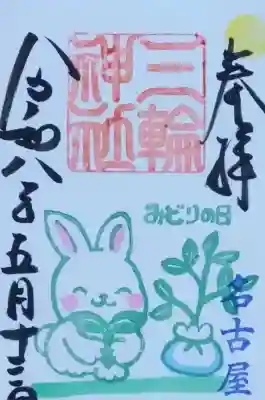 奉拝
三輪
神社
みどりの日
名古屋
令和八年五月十三日